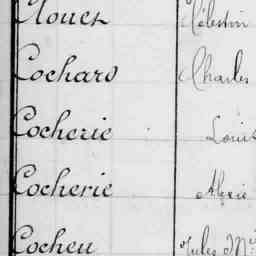 Clouet Célestin
Cochard Charles
Cocherie Louis
Cocherie Alexie
Cocheu Jules